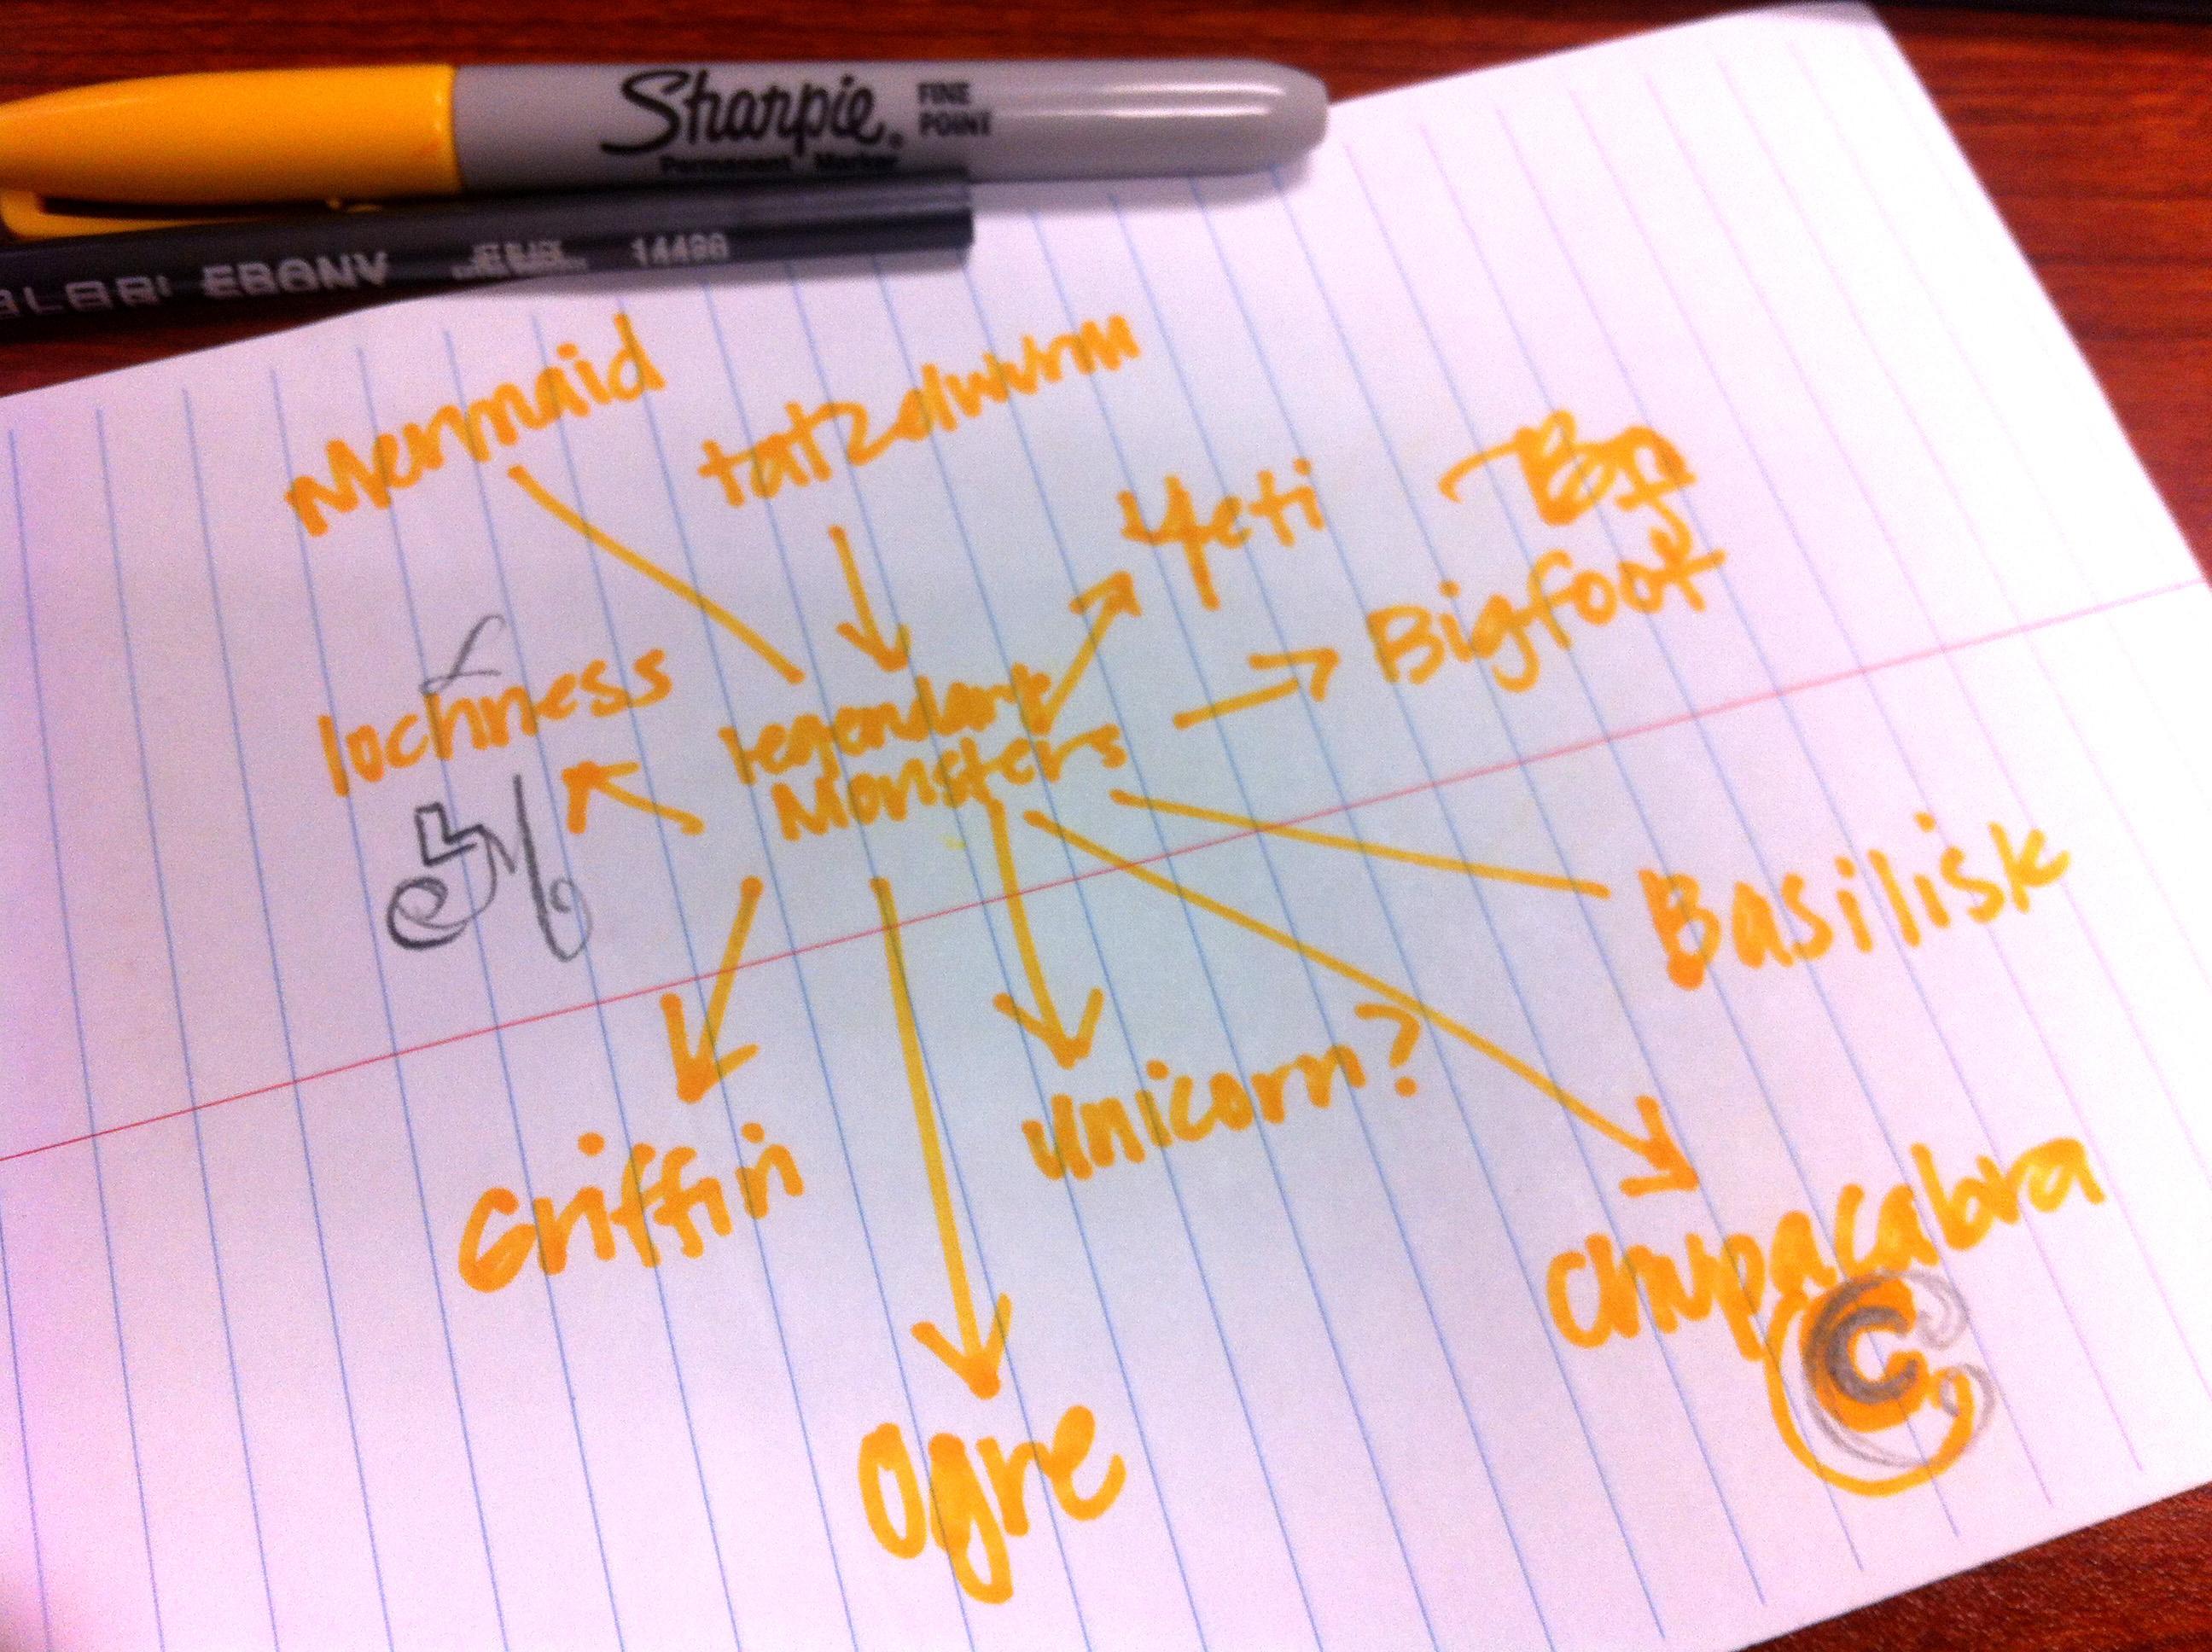 Sharpie.
FINE
POINT
Permanent Marker
EBONY
14420
Mermaid
tatzelwurm
Yeti
Bigfoot
L
lochness
legendary
Monsters
L M
Basilisk
Griffin
Unicorn?
Chupacabra
C
Ogre